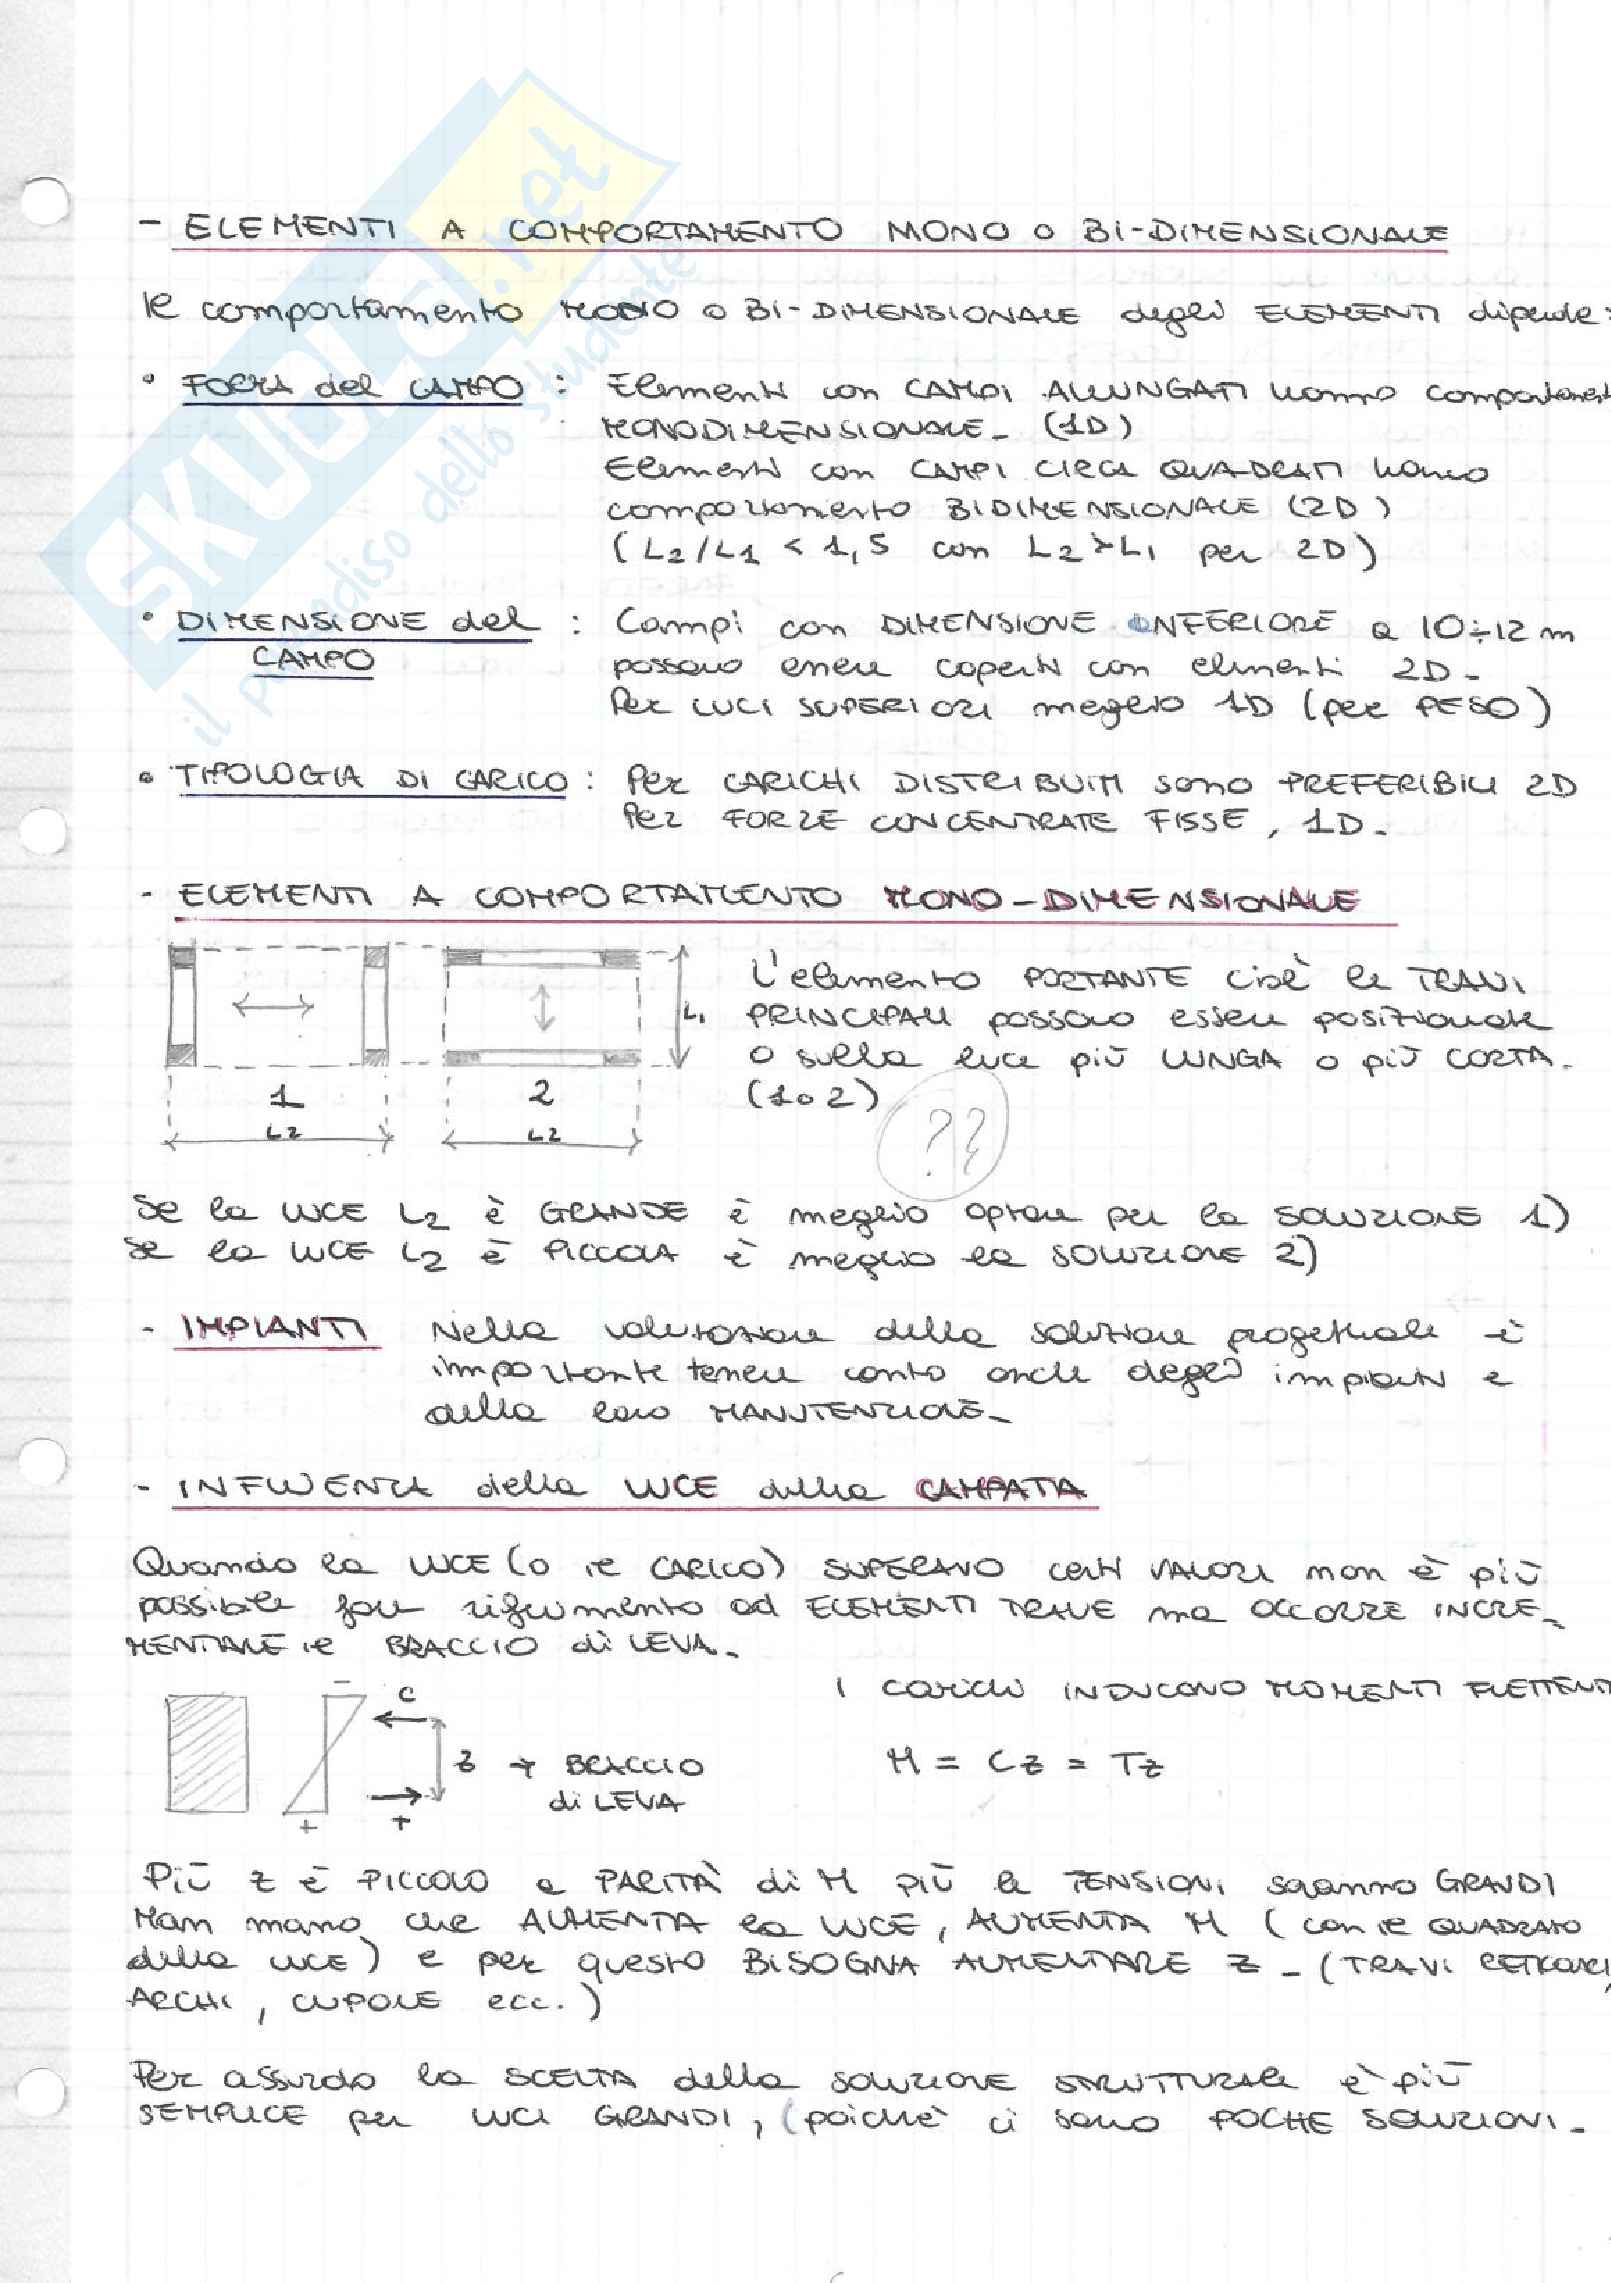 - ELEMENTI A COMPORTAMENTO MONO O BI-DIMENSIONALE
Il comportamento MONO O BI-DIMENSIONALE degli ELEMENTI dipende:
• FORMA del CAMPO : Elementi con CAMPI ALLUNGATI hanno comportament
MONODIMENSIONALE_ (1D)
Elementi con CAMPI CIRCA QUADRATI hanno
comportamento BIDIMENSIONALE (2D)
(L2/L1 < 1,5 con L2>L1 per 2D)
• DIMENSIONE del : Campi con DIMENSIONE INFERIORE a 10÷12 m
CAMPO possono essere coperti con elementi 2D_
Per LUCI SUPERIORI meglio 1D (per PESO)
• TIPOLOGIA DI CARICO : Per CARICHI DISTRIBUITI sono PREFERIBILI 2D
Per FORZE CONCENTRATE FISSE, 1D_
- ELEMENTI A COMPORTAMENTO MONO-DIMENSIONALE
L1
1 2
L2 L2
L'elemento PORTANTE cioè le TRAVI
PRINCIPALI possono essere posizionate
o sulla luce più LUNGA o più CORTA.
(1 o 2)
??
Se la LUCE L2 è GRANDE è meglio optare per la SOLUZIONE 1)
Se la LUCE L2 è PICCOLA è meglio la SOLUZIONE 2)
- IMPIANTI Nella valutazione della soluzione progettuale è
importante tenere conto anche degli impianti e
della loro MANUTENZIONE_
- INFLUENZA della LUCE della CAMPATA
Quando la LUCE (o il CARICO) SUPERANO certi VALORI non è più
possibile fare riferimento ad ELEMENTI TRAVE ma OCCORRE INCRE_
MENTARE il BRACCIO di LEVA_
I carichi INDUCONO MOMENTI FLETTENTI
- C
z → BRACCIO
di LEVA
+ T
M = Cz = Tz
Più z è PICCOLO a PARITÀ di M più le TENSIONI saranno GRANDI
Man mano che AUMENTA la LUCE, AUMENTA M (con il QUADRATO
della LUCE) e per questo BISOGNA AUMENTARE z _ (TRAVI RETICOLARI,
ARCHI, CUPOLE ecc.)
Per assurdo la SCELTA della SOLUZIONE STRUTTURALE è più
SEMPLICE per LUCI GRANDI, (poichè ci sono POCHE SOLUZIONI_
SKUOLA.net
il paradiso dello studente